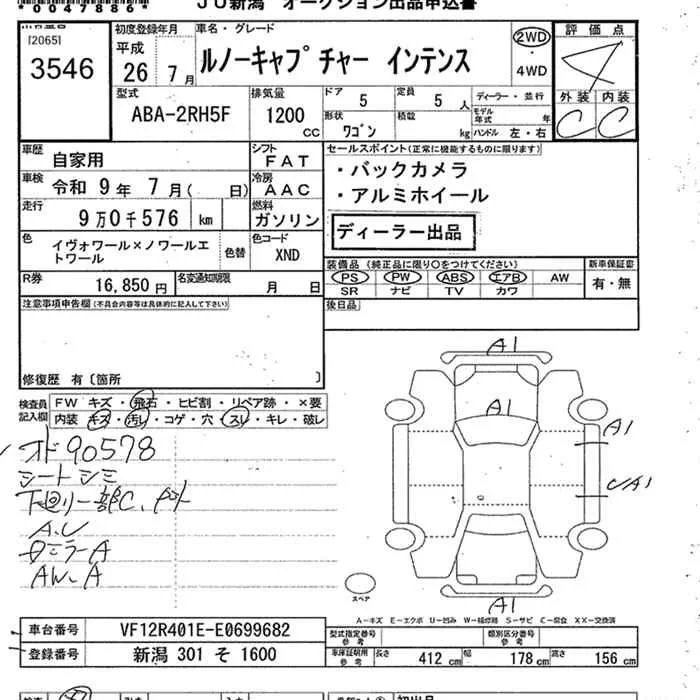 *0047886*
JU新潟 オークション出品申込書
[2065]
3546
初度登録年月
平成
26年 7月
車名・グレード
ルノーキャプチャー インテンス
2WD
・
4WD
評価点
4
外装 内装
C C
型式
ABA-2RH5F
排気量
1200
cc
ドア
5
定員
5人
ディーラー・並行
形状
ワゴン
積載
kg
モデル年式 年
ハンドル 左・右
車歴
自家用
シフト
FAT
セールスポイント(正常に機能するものに限ります)
・バックカメラ
・アルミホイール
ディーラー出品
車検
令和 9年 7月( 日)
冷房
AAC
走行
9万0千576 km
燃料
ガソリン
色
イヴォワール×ノワールエトワール
色替
色コード
XND
R券
16,850円
名変通知期限
月 日
装備品(純正品に限り○をつけてください)
PS PW ABS エアB AW
SR ナビ TV カワ
新車保証書
有・無
注意事項申告欄(不具合内容等は具体的に記入して下さい)
後日品
修復歴 有〔箇所 〕
検査員記入欄
FW キズ・飛石・ヒビ割・リペア跡・×要
内装 キズ・汚レ・コゲ・穴・スレ・キレ・破レ
オド90578
シートシミ
下廻り一部C、
A.U
A
AW.A
A1
A1
A1
A1
スペア
A-キズ E-エクボ U-凹み W-補修跡 S-サビ C-腐食 XX-交換済
車台番号
VF12R401E-E0699682
登録番号
新潟 301 そ 1600
型式指定番号
参考
類別区分番号
参考
車庫証明用
参考
長さ 412cm 幅 178cm 高さ 156cm